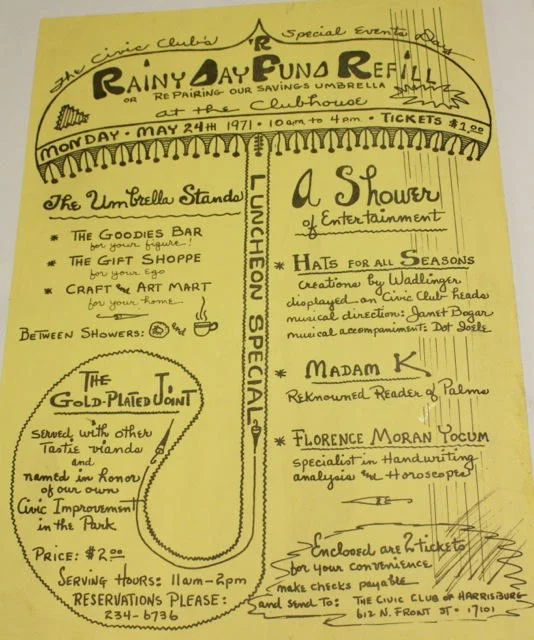 The Civic Club's Special Events Day
'R
RAINY DAY FUND REFILL
OR REPAIRING OUR SAVINGS UMBRELLA
at the Clubhouse
MONDAY • MAY 24TH 1971 • 10am to 4pm • TICKETS $1.00
The Umbrella Stands
* THE GOODIES BAR
for your figure!
* THE GIFT SHOPPE
for your Ego
* CRAFT and ART MART
for your home
BETWEEN SHOWERS: and
LUNCHEON SPECIAL
THE
GOLD-PLATED JOINT
served with other
Tastie viands
and
named in honor
of our own
Civic Improvement
in the Park
PRICE: $2.00
SERVING HOURS: 11am-2pm
RESERVATIONS PLEASE:
234-6736
A Shower
of Entertainment
* HATS FOR ALL SEASONS
creations by Wadlinger
displayed on Civic Club heads
musical direction: Janet Bogar
musical accompaniment: Dot Joele
* MADAM K
Reknowned Reader of Palms
* FLORENCE MORAN YOCUM
specialist in Handwriting
analysis and Horoscopes
Enclosed are 2 tickets
for your convenience
make checks payable
and send to: THE CIVIC CLUB OF HARRISBURG
612 N. FRONT ST. 17101